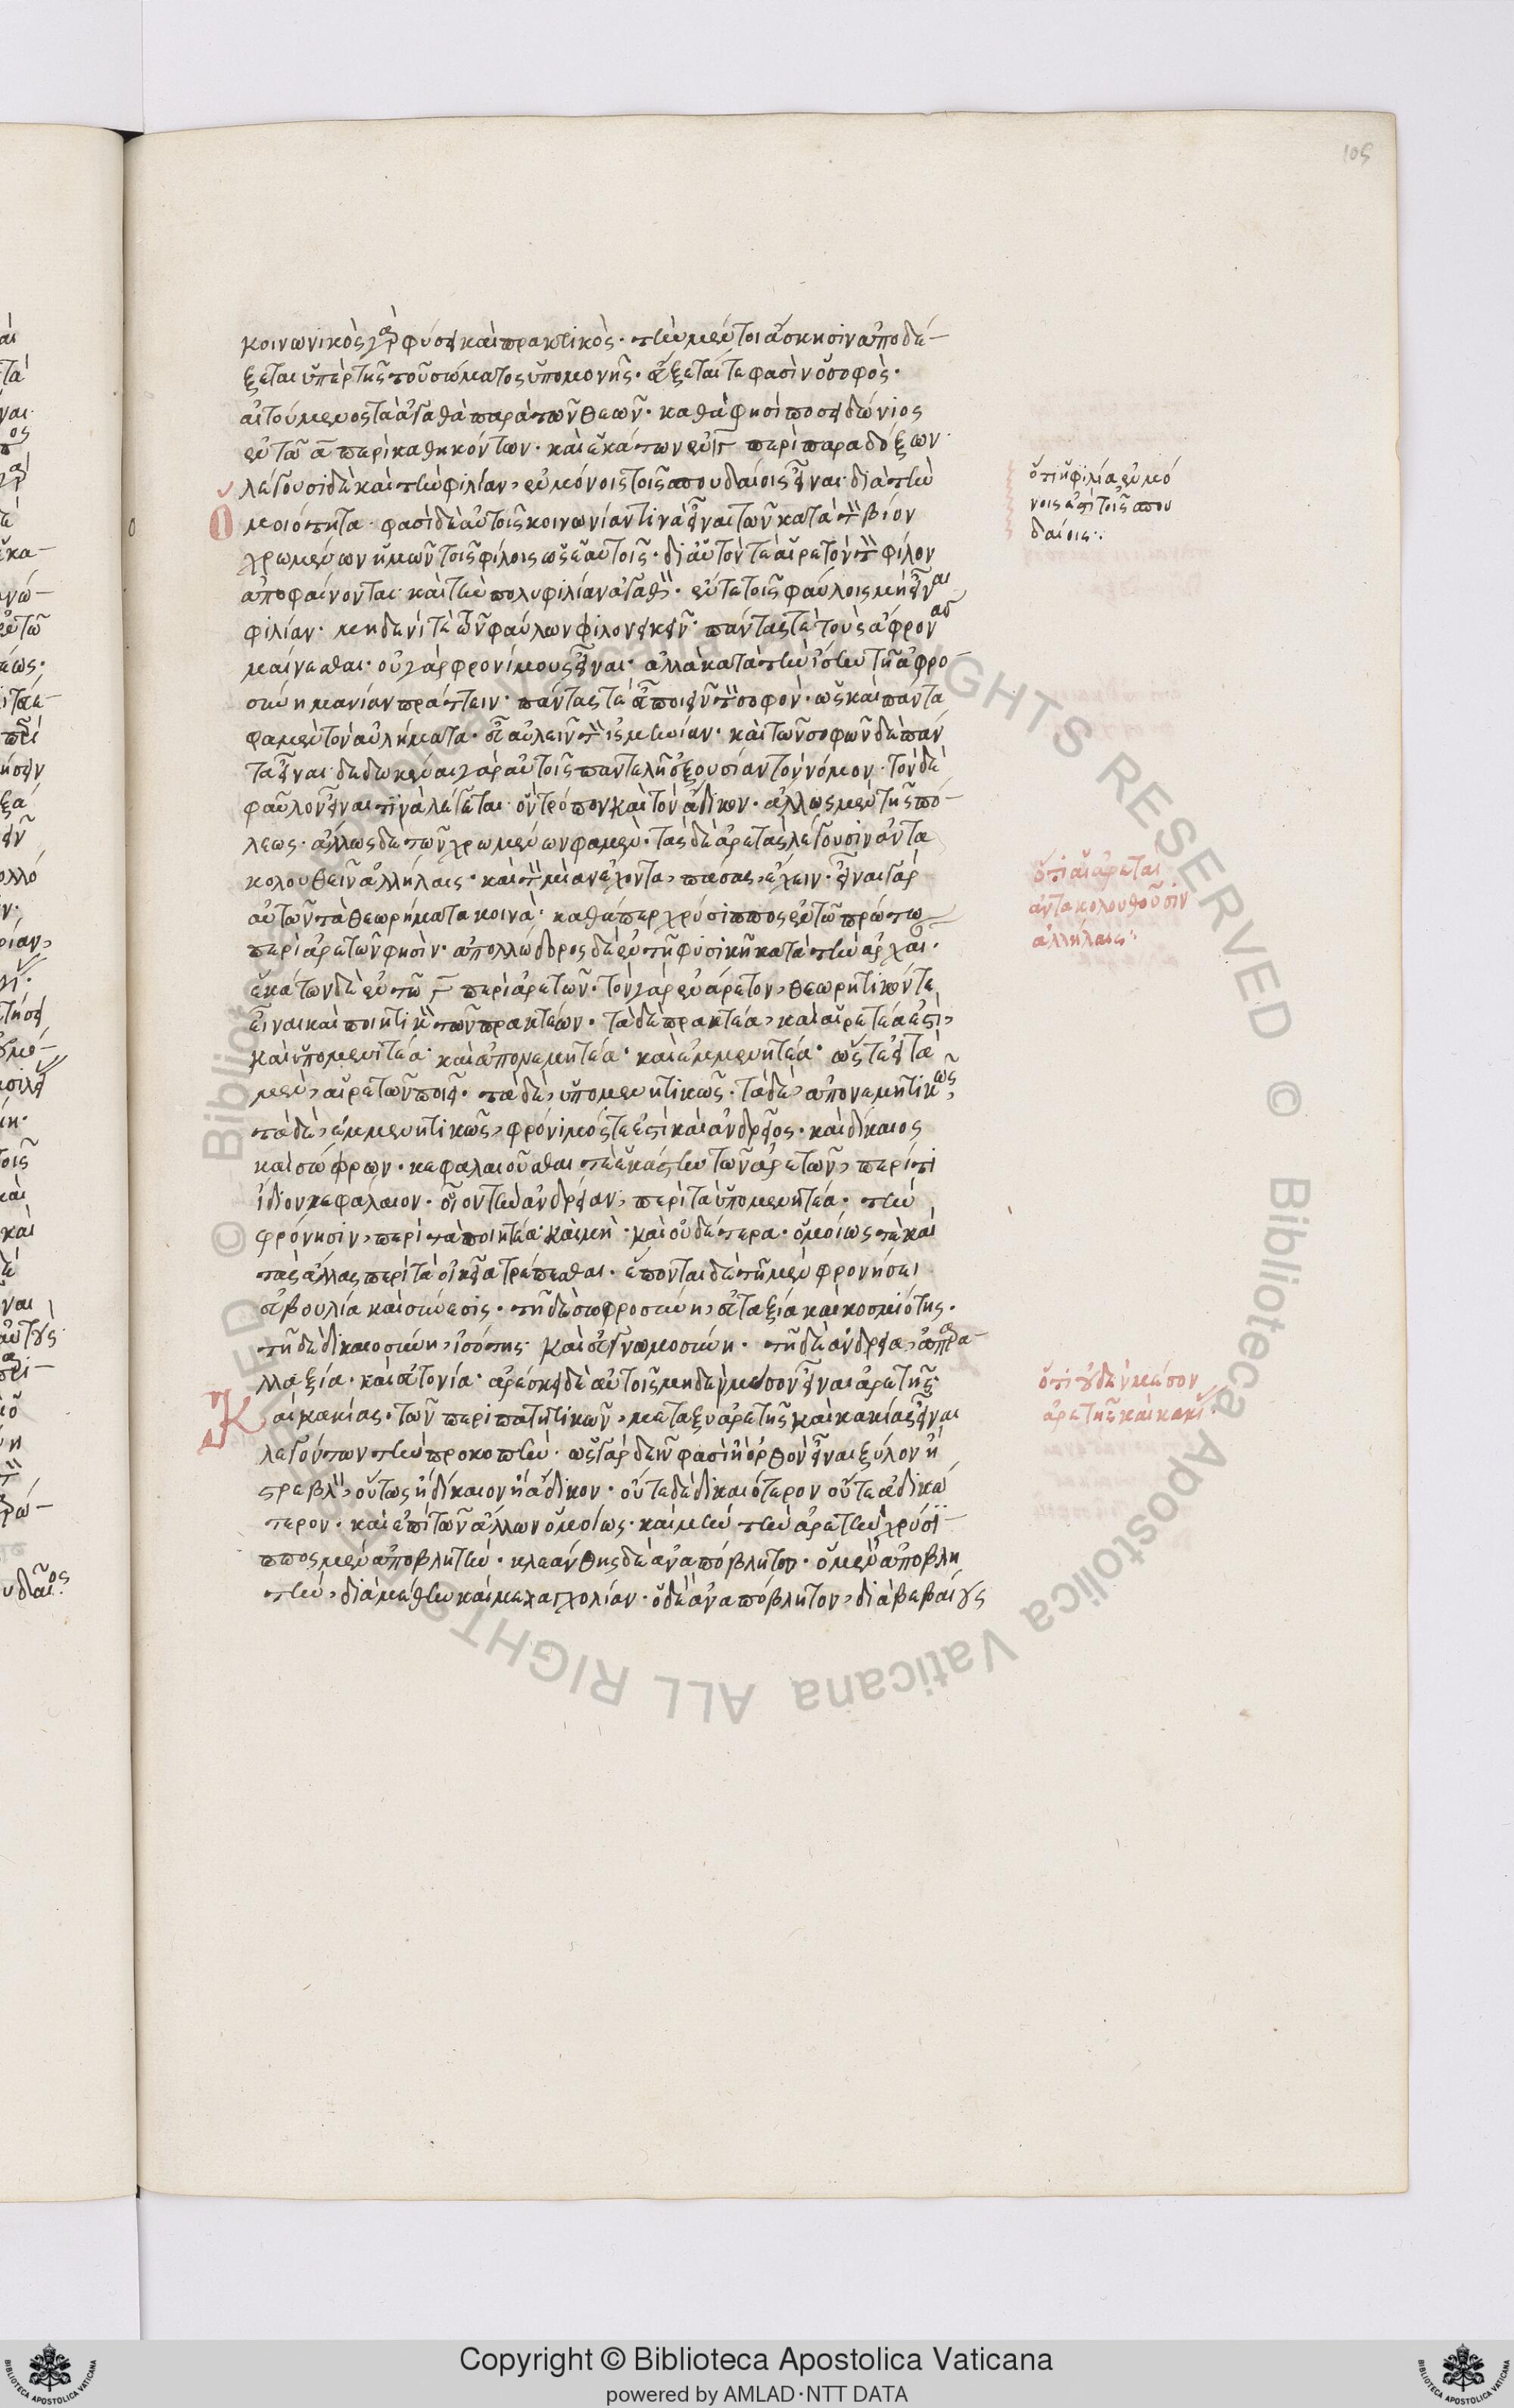 105
κοινωνικὸς γὰρ φύσει καὶ πρακτικός· τὴν μέντοι ἄσκησιν ἀποδέ-
ξεται ὑπὲρ τῆς τοῦ σώματος ὑπομονῆς· εὔξεταί τε φασὶν ὁ σοφὸς·
αἰτούμενος τὰ ἀγαθὰ παρὰ τῶν θεῶν· καθά φησι ποσειδώνιος
ἐν τῶ α περὶ καθηκόντων· καὶ ἑκάτων ἐν γ περὶ παραδόξων·
λέγουσι δὲ καὶ τὴν φιλίαν, ἐν μόνοις τοῖς σπουδαίοις εἶναι· διὰ τὴν
ὁμοιότητα· φασὶ δὲ αὐτοῖς κοινωνίαν τινὰ εἶναι τῶν κατὰ τὸν βίον
χρωμένων ἡμῶν τοῖς φίλοις ὡς ἑαυτοῖς· δι' αὑτόν τε αἱρετὸν τὸν φίλον
ἀποφαίνονται· καὶ τὴν πολυφιλίαν ἀγαθὸν· ἔν τε τοῖς φαύλοις μὴ εἶναι
φιλίαν· μηδενί τε τῶν φαύλων φίλον εἶναι· πάντας τὲ τοὺς ἄφρονας
μαίνεσθαι· οὐ γὰρ φρονίμους εἶναι· ἀλλὰ κατὰ τὴν ἴσην τῇ ἀφρο-
σύνη μανίαν πράττειν· πάντας τὲ εὖ ποιεῖν τὸν σοφὸν· ὡς καὶ πάντα
φαμὲν τὸν αὐλήματα· εὖ αὐλεῖν τὸν ἰσμηνίαν· καὶ τῶν σοφῶν δὲ πάν
τα εἶναι· δεδωκέναι γὰρ αὐτοῖς παντελῆ ἐξουσίαν τὸν νόμον· τῶν δὲ
φαύλων εἶναι τινὰ λέγεται· ὃν τρόπον καὶ τὸν ἀδίκων· ἄλλως μὲν τῆς πό-
λεως· ἄλλως δὲ τῶν χρωμένων φαμέν· τὰς δὲ ἀρετὰς λέγουσιν ἀντα
κολουθεῖν ἀλλήλαις· καὶ τὸν μίαν ἔχοντα, πάσας, ἔχειν· εἶναι γὰρ
αὐτῶν τὰ θεωρήματα κοινά· καθάπερ χρύσιππος ἐν τῶ πρώτω
περὶ ἀρετῶν φησίν· ἀπολλόδωρος δὲ ἐν τῇ φυσικῇ κατὰ τὴν ἀρχαί·
ἑκάτων δὲ ἐν τῶ γ περὶ ἀρετῶν· τὸν γὰρ ἐνάρετον, θεωρητικόν τε
εἶναι καὶ ποιητικὸν τῶν πρακτέων· τὰ δὲ πρακτέα, καὶ αἱρετέα ἐστὶ,
καὶ ὑπομενητέα· καὶ ἀπονεμητέα· καὶ ἐμμενητέα· ὥστε εἰ τὰ
μὲν, αἱρετῶν ποιεῖ· τὰ δὲ, ὑπομενητικῶς· τὰ δὲ, ἀπονεμητικῶς,
τὰ δὲ, ἐμμενητικῶς, φρόνιμός τε ἐστὶ καὶ ἀνδρεῖος· καὶ δίκαιος
καὶ σώφρων· κεφαλαιοῦσθαι τὲ ἑκάστην τῶν ἀρετῶν, περί τι
ἴδιον κεφάλαιον· οἷον τὴν ἀνδρείαν, περὶ τὰ ὑπομενητέα· τὴν
φρόνησιν, περὶ τὰ ποιητέα· καὶ μὴ· καὶ οὐδέτερα· ὁμοίως τὲ καὶ
τὰς ἄλλας περὶ τὰ οἰκεῖα τρέπεσθαι· ἕπονται δὲ τῇ μὲν φρονήσει
εὐβουλία καὶ σύνεσις· τῇ δὲ σωφροσύνη, εὐταξία καὶ κοσμιότης·
τῇ δὲ δικαιοσύνη, ἰσότης· καὶ εὐγνωμοσύνη· τῇ δὲ ἀνδρεία, ἀπαρα-
λλαξία· καὶ εὐτονία· ἀρέσκει δὲ αὐτοῖς μηδὲν μέσον εἶναι ἀρετῆς
Καὶ κακίας· τῶν περιπατητικῶν, μεταξὺ ἀρετῆς καὶ κακίας εἶναι
λεγόντων τὴν προκοπτήν· ὡς γὰρ δεῖν φασὶ ἢ ὀρθὸν εἶναι ξύλον ἢ
στρεβλὸν, οὕτως ἢ δίκαιον ἢ ἄδικον· οὔτε δὲ δικαιότερον οὔτε ἀδικώ
τερον· καὶ ἐπὶ τῶν ἄλλων ὁμοίως· καὶ μὴν τὴν ἀρετὴν χρύσι-
ππος μὲν ἀποβλητήν· κλεάνθης δὲ ἀναπόβλητον· ὁ μὲν ἀποβλη
τήν, διὰ μέθην καὶ μελαγχολίαν· ὁ δὲ ἀναπόβλητον, διὰ βεβαίους
ὅτι ἡ φιλία ἐν μό
νοις ἐστὶ τοῖς σπου
δαίοις:
ὅτι αἱ ἀρεταὶ
ἀντακολουθοῦσιν
ἀλλήλαις:
ὅτι οὐδὲν μέσον
ἀρετῆς καὶ κακί
Copyright © Biblioteca Apostolica Vaticana
powered by AMLAD·NTT DATA